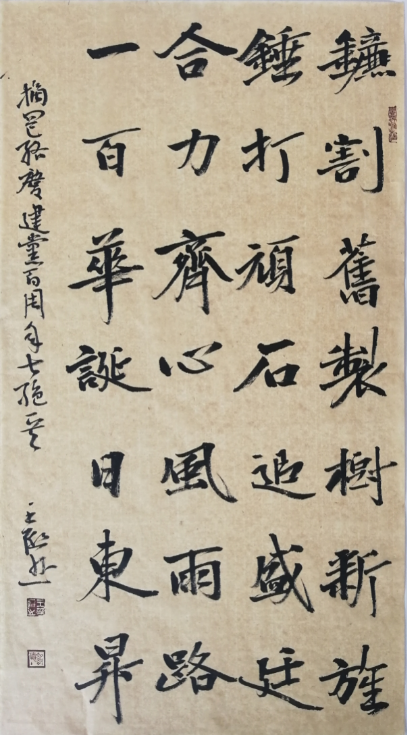 鐮割舊製樹新旌
錘打頑石追盛廷
合力齊心風雨路
一百華誕日東昇
摘 慶建黨百周年七絕一首
王